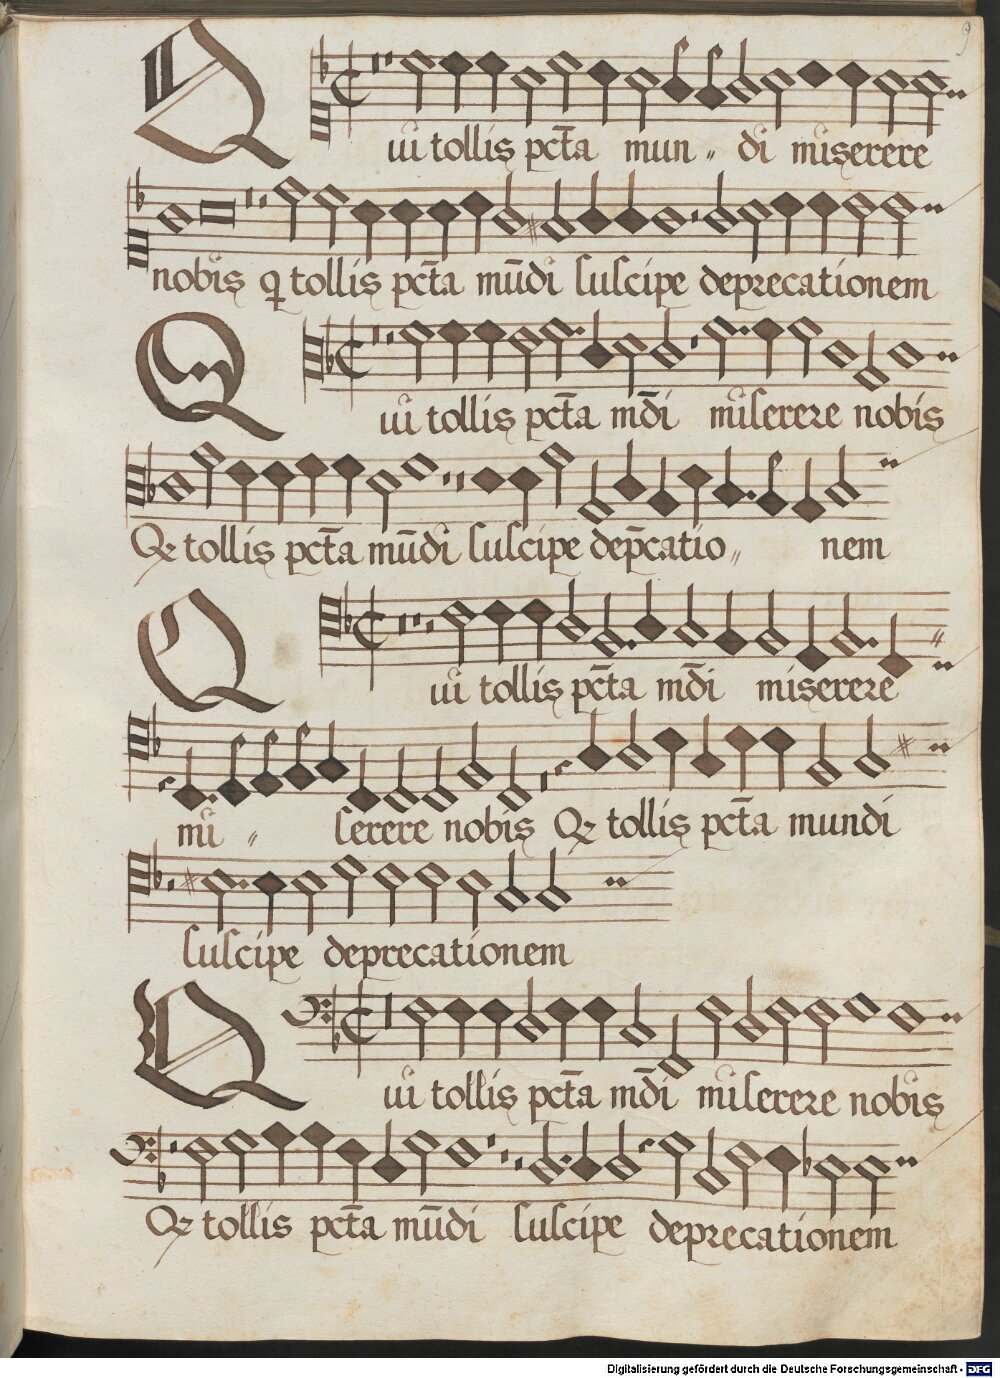 9
Qui tollis pct̄a mun〃di miserere
nobis q tollis pct̄a mūdi suscipe deprecationem
Qui tollis pct̄a md̄i miserere nobis
Qz tollis pct̄a mūdi suscipe dep̄catio〃nem
Qui tollis pct̄a md̄i miserere
mi〃serere nobis Qz tollis pct̄a mundi
suscipe deprecationem
Qui tollis pct̄a md̄i miserere nobis
Qz tollis pct̄a mūdi suscipe deprecationem
Digitalisierung gefördert durch die Deutsche Forschungsgemeinschaft - DFG